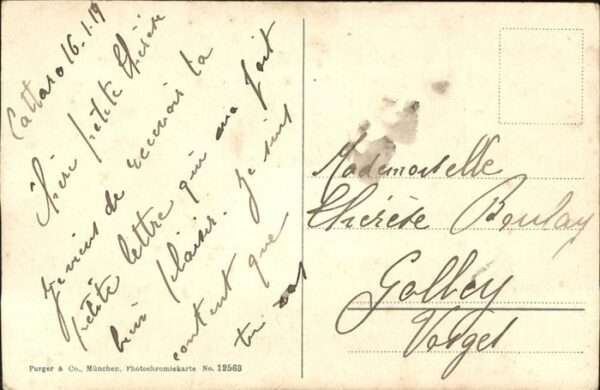 Cattaro 16.1.19
Chère petite thérèse
Je viens de recevoir ta
petite lettre qui ma fait
bien plaisir. Je suis
content que
tu vas
Mademoiselle
thérèse Boulay
Golbey
Vosges
Purger & Co., München, Photochromiekarte No. 12563